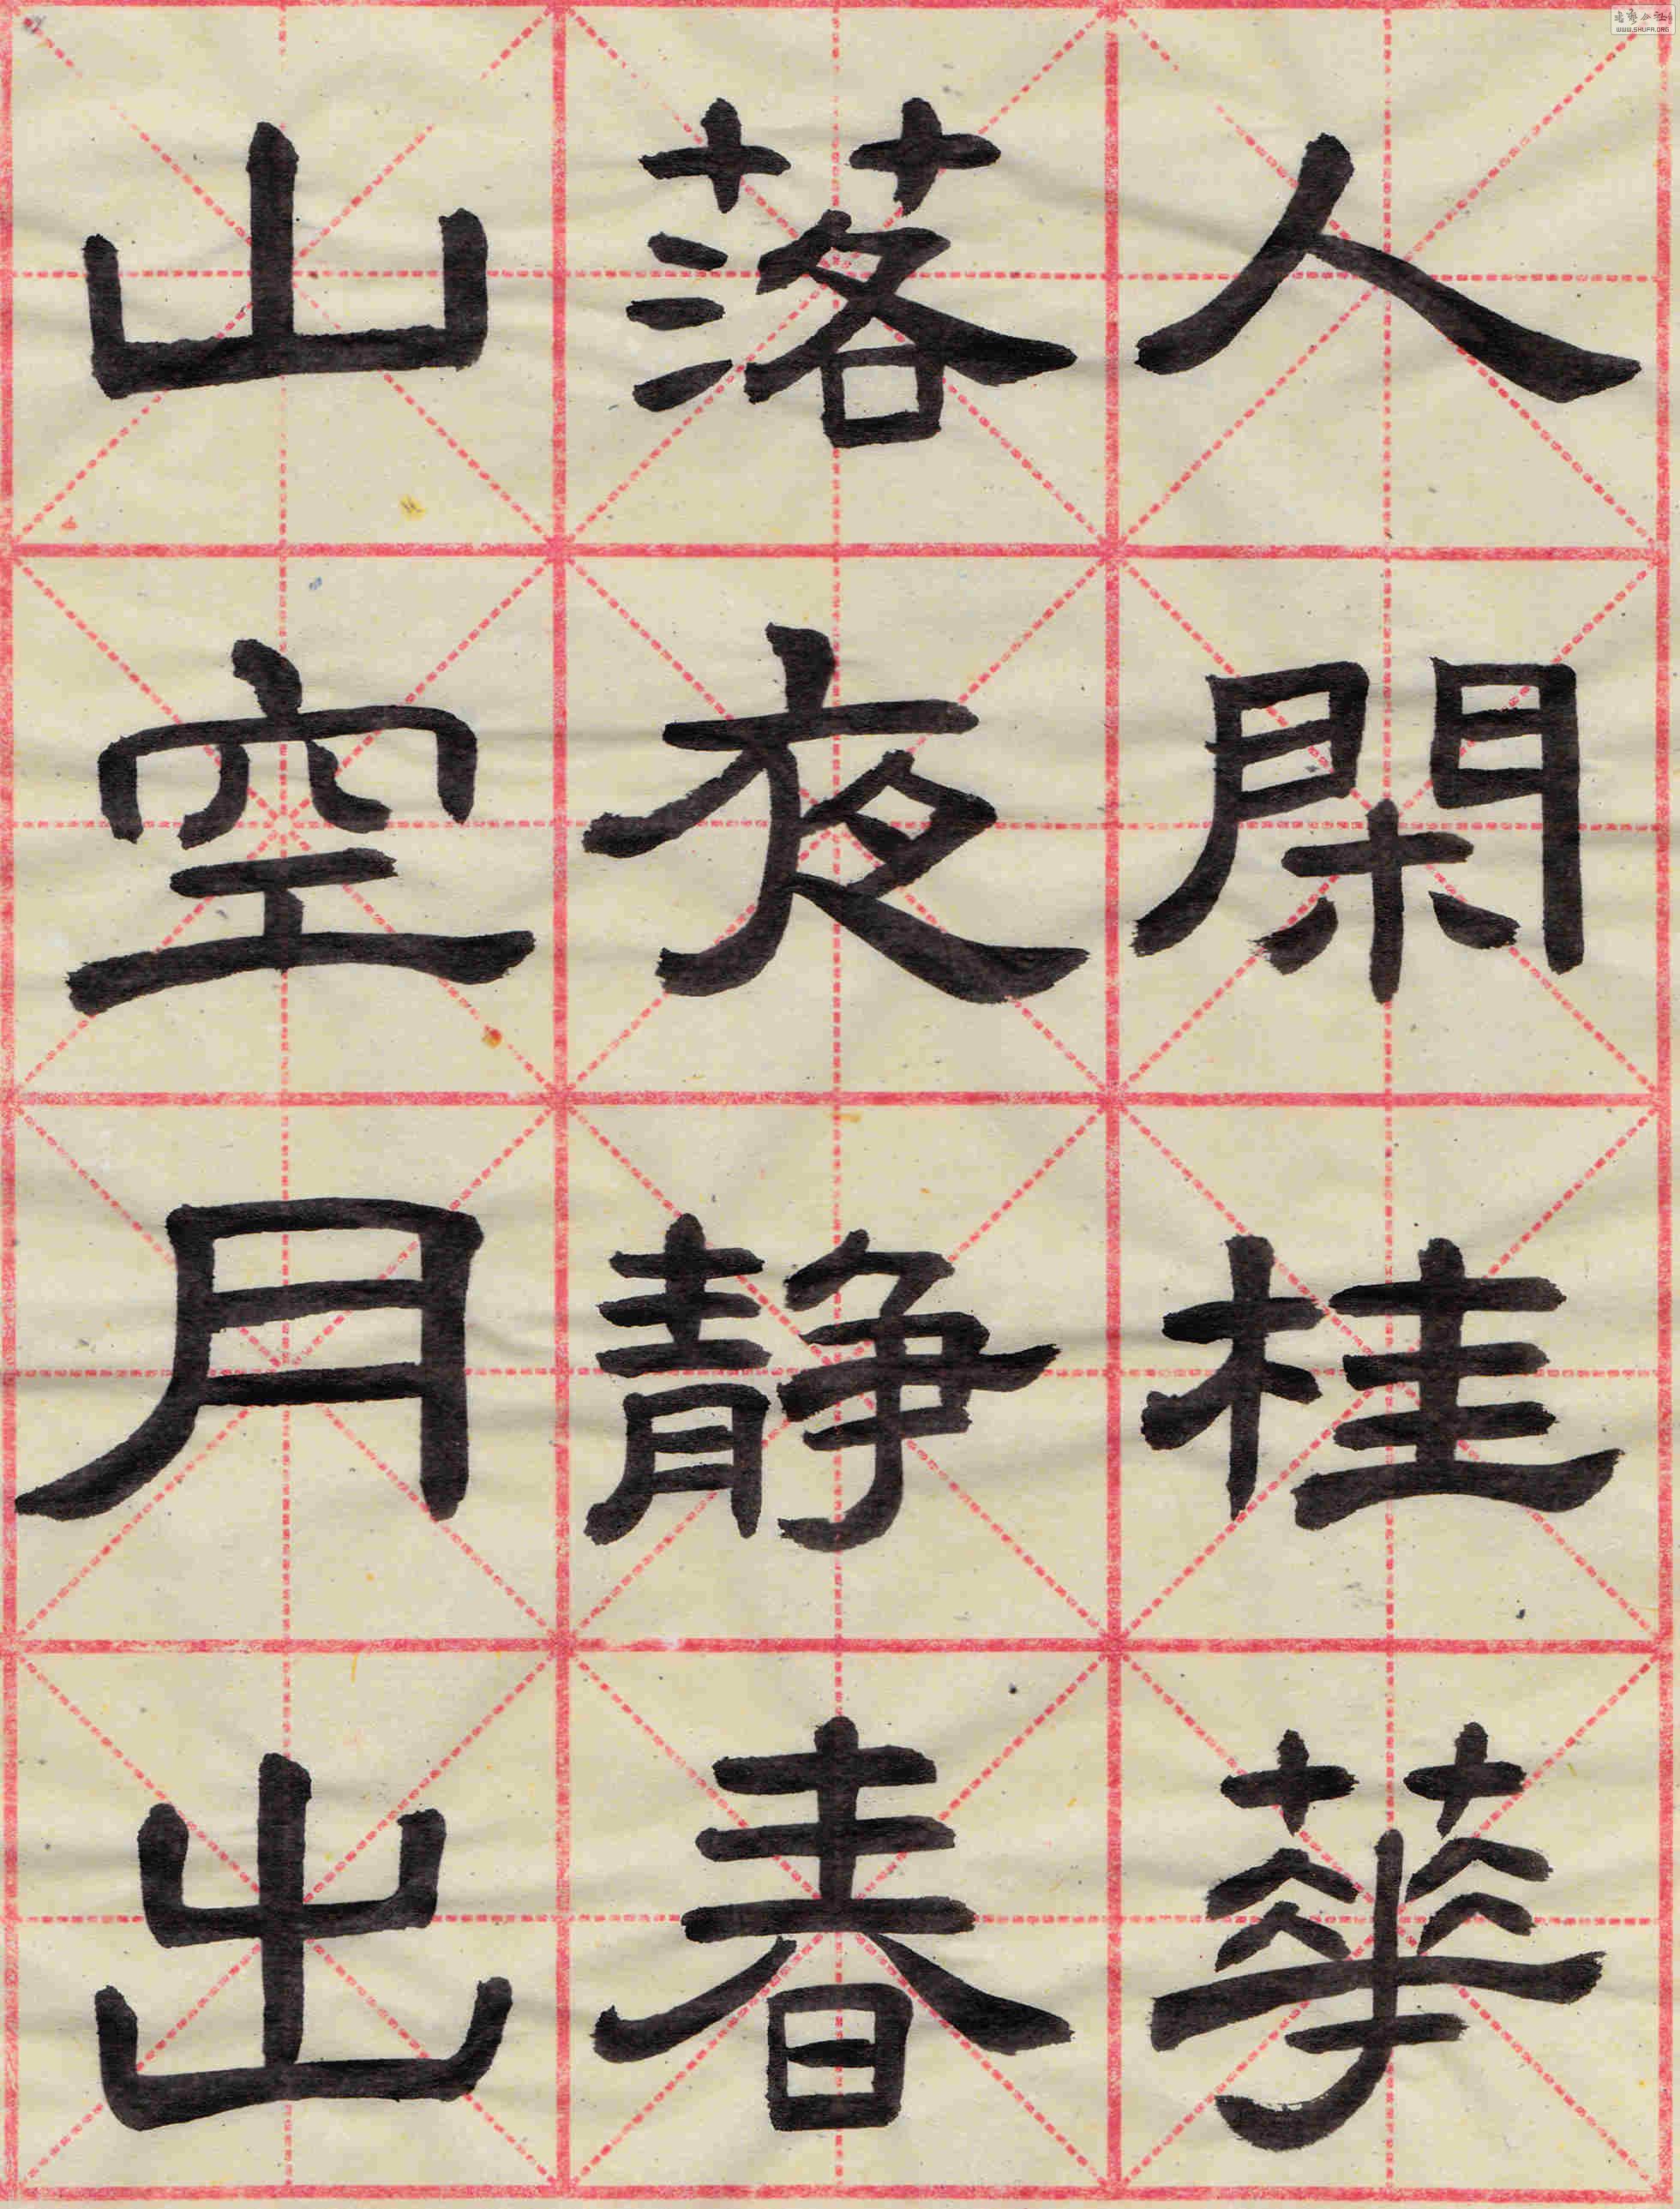 人閑桂華
落夜静春
山空月出
WWW.SHUFA.ORG